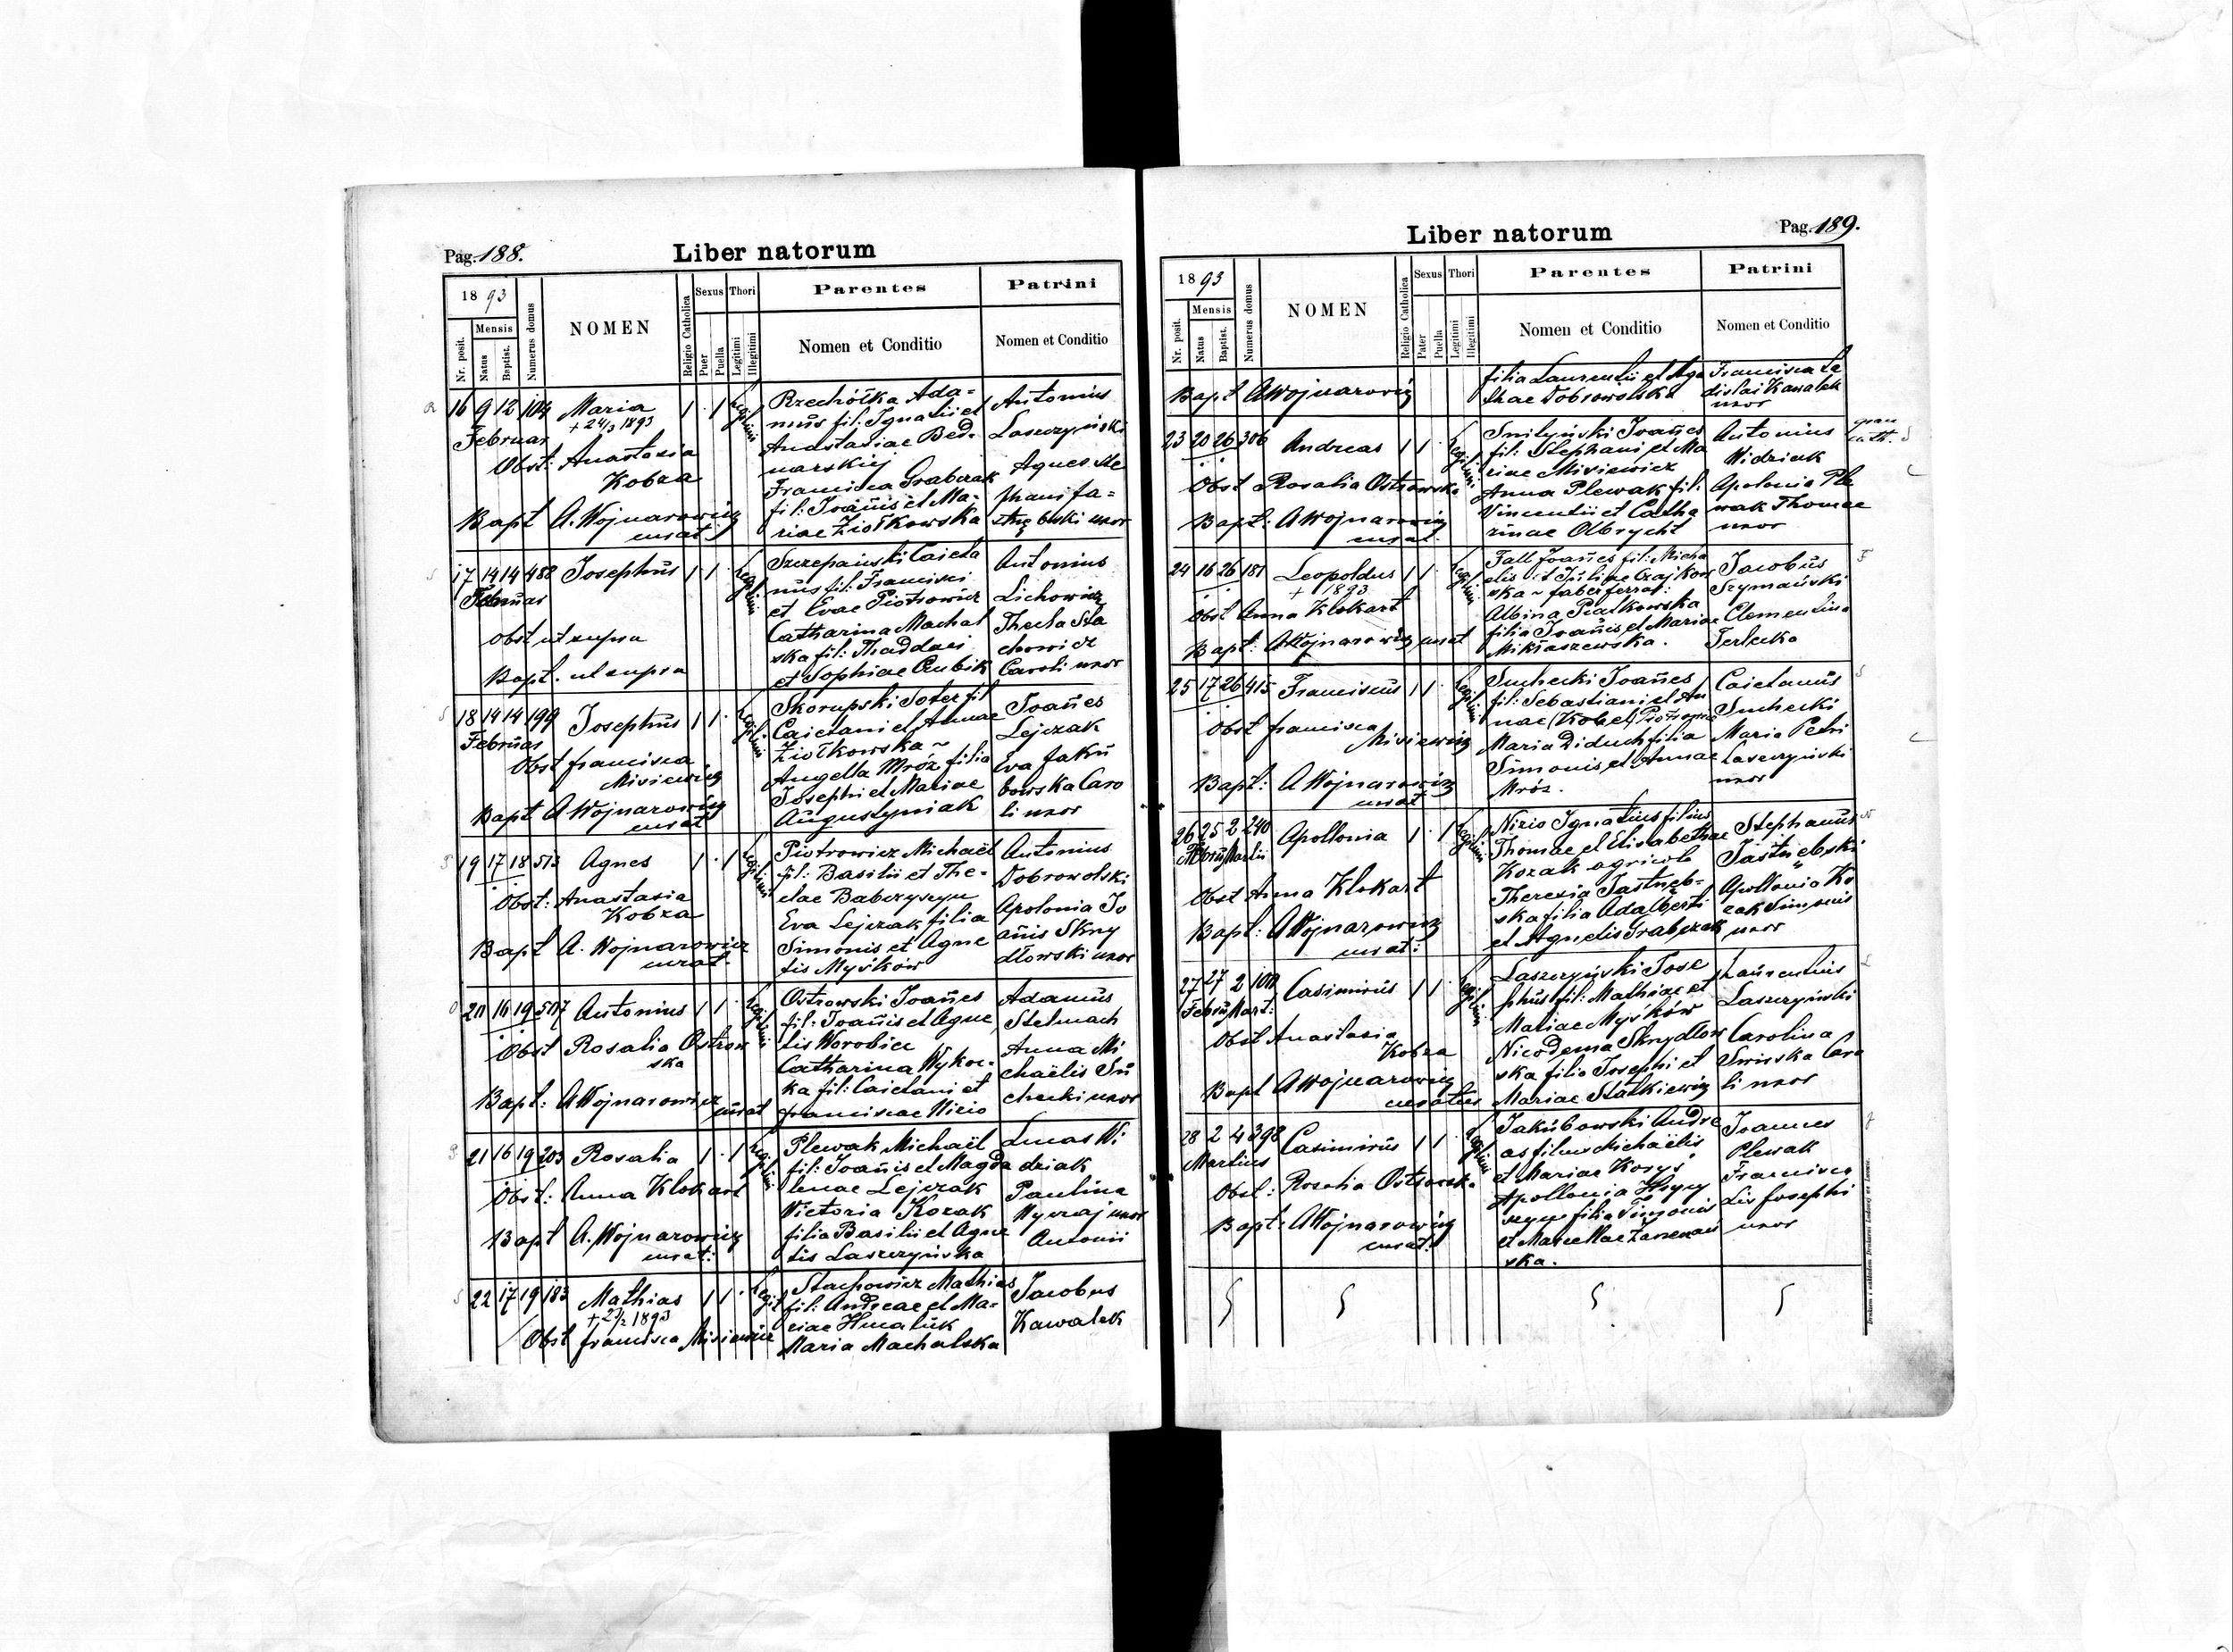 Pag. 188.
Liber natorum
18 93
Nr. posit.
Mensis
Natus
Baptist.
Numerus domus
NOMEN
Religio Catholica
Sexus
Puer
Puella
Thori
Legitimi
Illegitimi
Parentes
Nomen et Conditio
Patrini
Nomen et Conditio
16 9 12 104 Maria 1 · 1
+ 24/3 1893
Februar
Obst: Anastasia
Kobza
Bapt A. Wojnarowicz
curat:
Rzechółka Ada-
mus fil: Ignatii et
Anastasiae Bed-
narskij
Francisca Grabczak
fil: Joañis et Ma-
riae Ziołkowska
Antonius
Laszczyński
Agnes Ste
phani Ja-
strzębski uxor
17 14 14 488 Josephus 1 · 1 ·
Februar
Obst ut supra
Bapt. ut supra
Szczepański Caieta
nus fil: Francisci
et Evae Piotrowicz
Catharina Machal
ska fil: Thaddaei
et Sophiae Kubik
Antonius
Lichowicz
Thecla Sta
chowicz
Caroli uxor
18 14 14 199 Josephus 1 1 ·
Februar
Obst Francisca
Misiewicz
Bapt A Wojnarowicz
curat
Skorupski Soter fil
Caietani et Annae
Ziołkowska ~
Angella Mróz filia
Josephi et Mariae
Augustyniak
Joañes
Lejczak
Eva Jaku
bowska Caro
li uxor
19 17 18 513 Agnes 1 · 1
Obst: Anastasia
Kobza
Bapt A. Wojnarowicz
curat.
Piotrowicz Michaël
fil: Basilii et The-
clae Babczyszyn
Eva Lejczak filia
Simonis et Agne
tis Myśków
Antonius
Dobrowolski
Apolonia Jo
añis Skry
dłowski uxor
20 16 19 517 Antonius 1 1 ·
Obst Rosalia Ostrow
ska
Bapt: A Wojnarowicz curat
Ostrowski Joañes
fil: Joañis et Agne
tis Worobiec
Catharina Wykoc-
ka fil: Caietani et
Franciscae Nizio
Adamus
Stelmach
Anna Mi
chaëlis Su
checki uxor
21 16 19 203 Rosalia 1 · 1
Obst: Anna Klokart
Bapt A. Wojnarowicz
curat:
Plewak Michaël
fil: Joañis et Magda
lenae Lejczak
Victoria Kozak
filia Basilii et Agne
tis Laszczyńska
Lucas Wi
dziak
Paulina
uxor
Antonii
22 17 19 183 Mathias 1 1 ·
1893
Obst Francisca Misiewicz
Stachowicz Mathias
fil: Andreae et Ma-
riae Hnatiuk
Maria Machalska
Jacobus
Kawalek
Pag. 189.
Liber natorum
18 93
Nr. posit.
Mensis
Natus
Baptist.
Numerus domus
NOMEN
Religio Catholica
Sexus
Pater
Puella
Thori
Legitimi
Illegitimi
Parentes
Nomen et Conditio
Patrini
Nomen et Conditio
Bapt A Wojnarowicz
filia Laurentii et Aga
thae Dobrowolska
Francisca La
dislai Kawalek
uxor
23 20 26 306 Andreas 1 1 ·
Obst Rosalia Ostrowska
Bapt: A Wojnarowicz
curat.
Smilyński Joañes
fil: Stephani et Ma
riae Misiewicz
Anna Plewak fil:
Vincentii et Catha
rinae Olbrycht
Antonius
Widziak
Apolonia Ple
wak Thomae
uxor
24 16 26 181 Leopoldus 1 1 ·
+ 1893
Obst Anna Klokart
Bapt: A Wojnarowicz curat
Fall Joañes fil: Micha
elis et Julinae Czajkow
ska ~ faber ferrar:
Albina Piatkowska
filia Joañis et Mariae
Miklaszewska.
Jacobus
Szymański
Clementina
Terlecka
25 17 26 415 Franciscus 1 1 ·
Obst Francisca
Misiewicz
Bapt: A Wojnarowicz
curat
Suchecki Joañes
fil: Sebastiani et An
nae (Kobel)
Maria Diduch filia
Simonis et Annae
Mróz.
Caietanus
Suchecki
Maria Petri
Laszczyński
uxor
26 25 2 240 Apollonia 1 · 1
Februar Martii
Obst Anna Klokart
Bapt: A Wojnarowicz
curat:
Nizio Ignatius filius
Thomae et Elisabethae
Kozak agricola
Theresia Jastrzęb-
ska filia Adalberti
et Agnetis Grabczak
Stephanus
Jastrzębski
Apollonia Ko
zak Simonis
uxor
27 27 2 101 Casimirus 1 1 ·
Febru Mart:
Obst Anastasia
Kobza
Bapt A Wojnarowicz
curatus
Laszczyński Jose
phus fil: Mathiae et
Mariae Myśków
Nicodema Skrydłow
ska filia Josephi et
Mariae Statkiewicz
Laurentius
Laszczyński
Carolina
Swirska Caro
li uxor
28 2 4 398 Casimirus 1 1 ·
Martius
Obst: Rosalia Ostrowska
Bapt: A Wojnarowicz
curat:
Jakubowski Andre
as filius Michaëlis
et Mariae Korys
Apollonia Hryn
filia Simonis
et Marcellae
ska.
Joannes
Plewak
Francisca
Lis Josephi
uxor